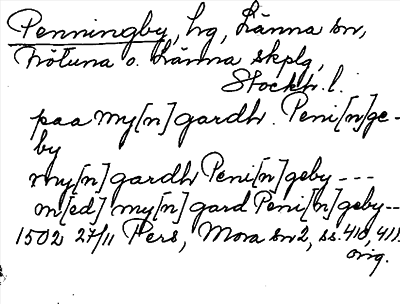 Penningby, hg, Länna sn,
Frötuna o. Länna skplg,
Stockh. l.
paa my[n] gardh. Peni[n]ge-
by
my[n] gardh Peni[n]geby ---
m[ed] my[n] gard Peni[n]geby--
1502 27/11 Pers, Mora sn 2, ss. 410, 411.
orig.